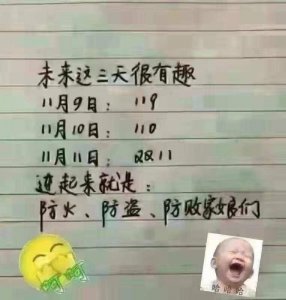 未来这三天很有趣
11月9日：119
11月10日：110
11月11日：双11
连起来就是：
防火、防盗、防败家娘们
呵呵
哈哈哈